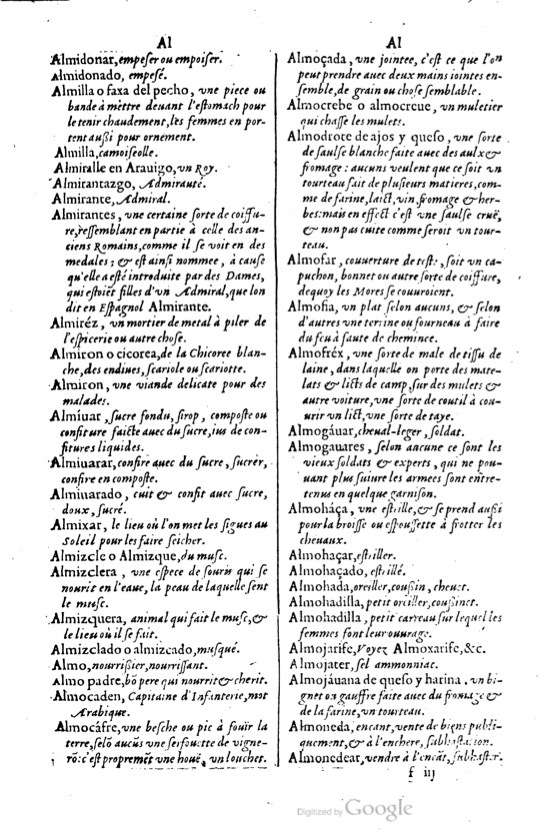 Al
Almidonar, empeser ou empoiser.
Almidonado, empesé.
Almilla o faxa del pecho, vne piece ou
bande à mettre deuant l'estomach pour
le tenir chaudement, les femmes en por-
tent aussi pour ornement.
Almilla, camoiseolle.
Almiralle en Arauigo, vn Roy.
Almirantazgo, Admirauté.
Almirante, Admiral.
Almirantes, vne certaine sorte de coiffu-
re, ressemblant en partie à celle des an-
ciens Romains, comme il se voit en des
medales; & est ainsi nommee, à cause
qu'elle a esté introduite par des Dames,
qui estoiẽt filles d'vn Admiral, que lon
dit en Espagnol Almirante.
Almiréz, vn mortier de metal à piler de
l'espicerie ou autre chose.
Almiron o cicorea, de la Chicoree blan-
che, des endiues, scariole ou scariotte.
Almiron, vne viande delicate pour des
malades.
Almíuar, sucre fondu, sirop, composte ou
confiture faicte auec du sucre, ius de con-
fitures liquides.
Almiuarar, confire auec du sucre, sucrer,
confire en composte.
Almiuarado, cuit & confit auec sucre,
doux, sucré.
Almixar, le lieu où l'on met les figues au
Soleil pour les faire seicher.
Almizcle o Almizque, du musc.
Almizclera, vne espece de souris qui se
nourit en l'eaue, la peau de laquelle sent
le musc.
Almizquera, animal qui fait le musc, &
le lieu où il se fait.
Almizclado o almizcado, musqué.
Almo, nourrissier, nourrissant.
Almo padre, bõ pere qui nourrit & cherit.
Almocaden, Capitaine d'Infanterie, mot
Arabique.
Almocáfre, vne besche ou pic à fouir la
terre, selõ aucũs vne serfouette de vigne-
rõ: c'est propremẽt vne houë, vn louchet.
Al
Almoçada, vne jointee, c'est ce que l'on
peut prendre auec deux mains iointes en-
semble, de grain ou chose semblable.
Almocrebe o almocreue, vn muletier
qui chasse les mulets.
Almodrote de ajos y queso, vne sorte
de saulse blanche faite auec des aulx &
fromage: aucuns veulent que ce soit vn
tourteau fait de plusieurs matieres, com-
me de farine, laict, vin, fromage & her-
bes: mais en effect c'est vne saulse cruë,
& non pas cuite comme seroit vn tour-
teau.
Almofar, couuerture de teste, soit vn ca-
puchon, bonnet ou autre sorte de coiffure,
dequoy les Mores se couuroient.
Almofia, vn plat selon aucuns, & selon
d'autres vne terrine ou fourneau à faire
du feu à faute de cheminee.
Almofréx, vne sorte de male de tissu de
laine, dans laquelle on porte des mate-
lats & licts de camp, sur des mulets &
autre voiture, vne sorte de coutil à cou-
urir vn lict, vne sorte de taye.
Almogáuar, cheual-leger, soldat.
Almogauares, selon aucuns ce sont les
vieux soldats & experts, qui ne pou-
uant plus suiure les armees sont entre-
tenus en quelque garnison.
Almoháça, vne estrille, & se prend aussi
pour la broisse ou espoussette à frotter les
cheuaux.
Almohaçar, estriller.
Almohaçado, estrillé.
Almohada, oreiller, coussin, cheuet.
Almohadilla, petit oreiller, coussinet.
Almohadilla, petit carreau sur lequel les
femmes font leur ouurage.
Almojarife, Voyez Almoxarife, &c.
Almojater, sel ammoniac.
Almojáuana de queso y harina, vn bi-
gnet ou gauffre faite auec du fromage &
de la farine, vn tourteau.
Almoneda, encant, vente de biens publi-
quement, & à l'enchere, subhastation.
Almonedear, vendre à l'encãt, subhaster.
f iij
Digitized by Google